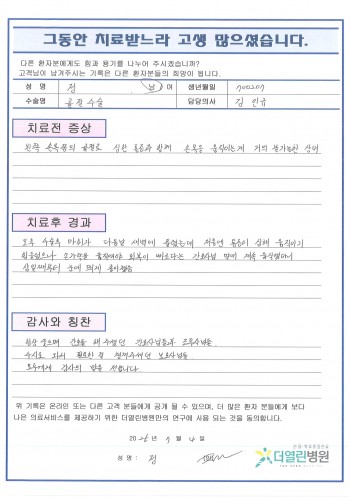 그동안 치료받느라 고생 많으셨습니다.
다른 환자분에게도 힘과 용기를 나누어 주시겠습니까?
고객님이 남겨주시는 기록은 다른 환자분들의 희망이 됩니다.
성 명 정 남 여 생년월일
수술명 골절수술 담당의사 김
치료전 증상
왼쪽 손목의 골절로 심한 통증과 함께 손목을 움직이는게 거의 불가능한 상태
치료후 경과
오후 수술후 마취가 다음날 새벽에 풀렸는데 처음엔 통증이 심해 움직이기
힘들었으나 손가락을 움직여야 회복이 빠르다는 간호사님 말에 계속 움직였더니
삼일째부터 눈에 띄게 좋아졌음
감사와 칭찬
항상 웃으며 간호를 해 주셨던 간호사님들과
수시로 와서 필요한걸 챙겨주셨던
모두에게 감사의 말을 전합니다.
위 기록은 온라인 또는 다른 고객 분들에게 공개 될 수 있으며, 더 많은 환자 분들에게 보다
나은 의료서비스를 제공하기 위한 더열린병원만의 연구에 사용 되는 것을 동의합니다.
년 월 일
성 명 : 정
더열린병원